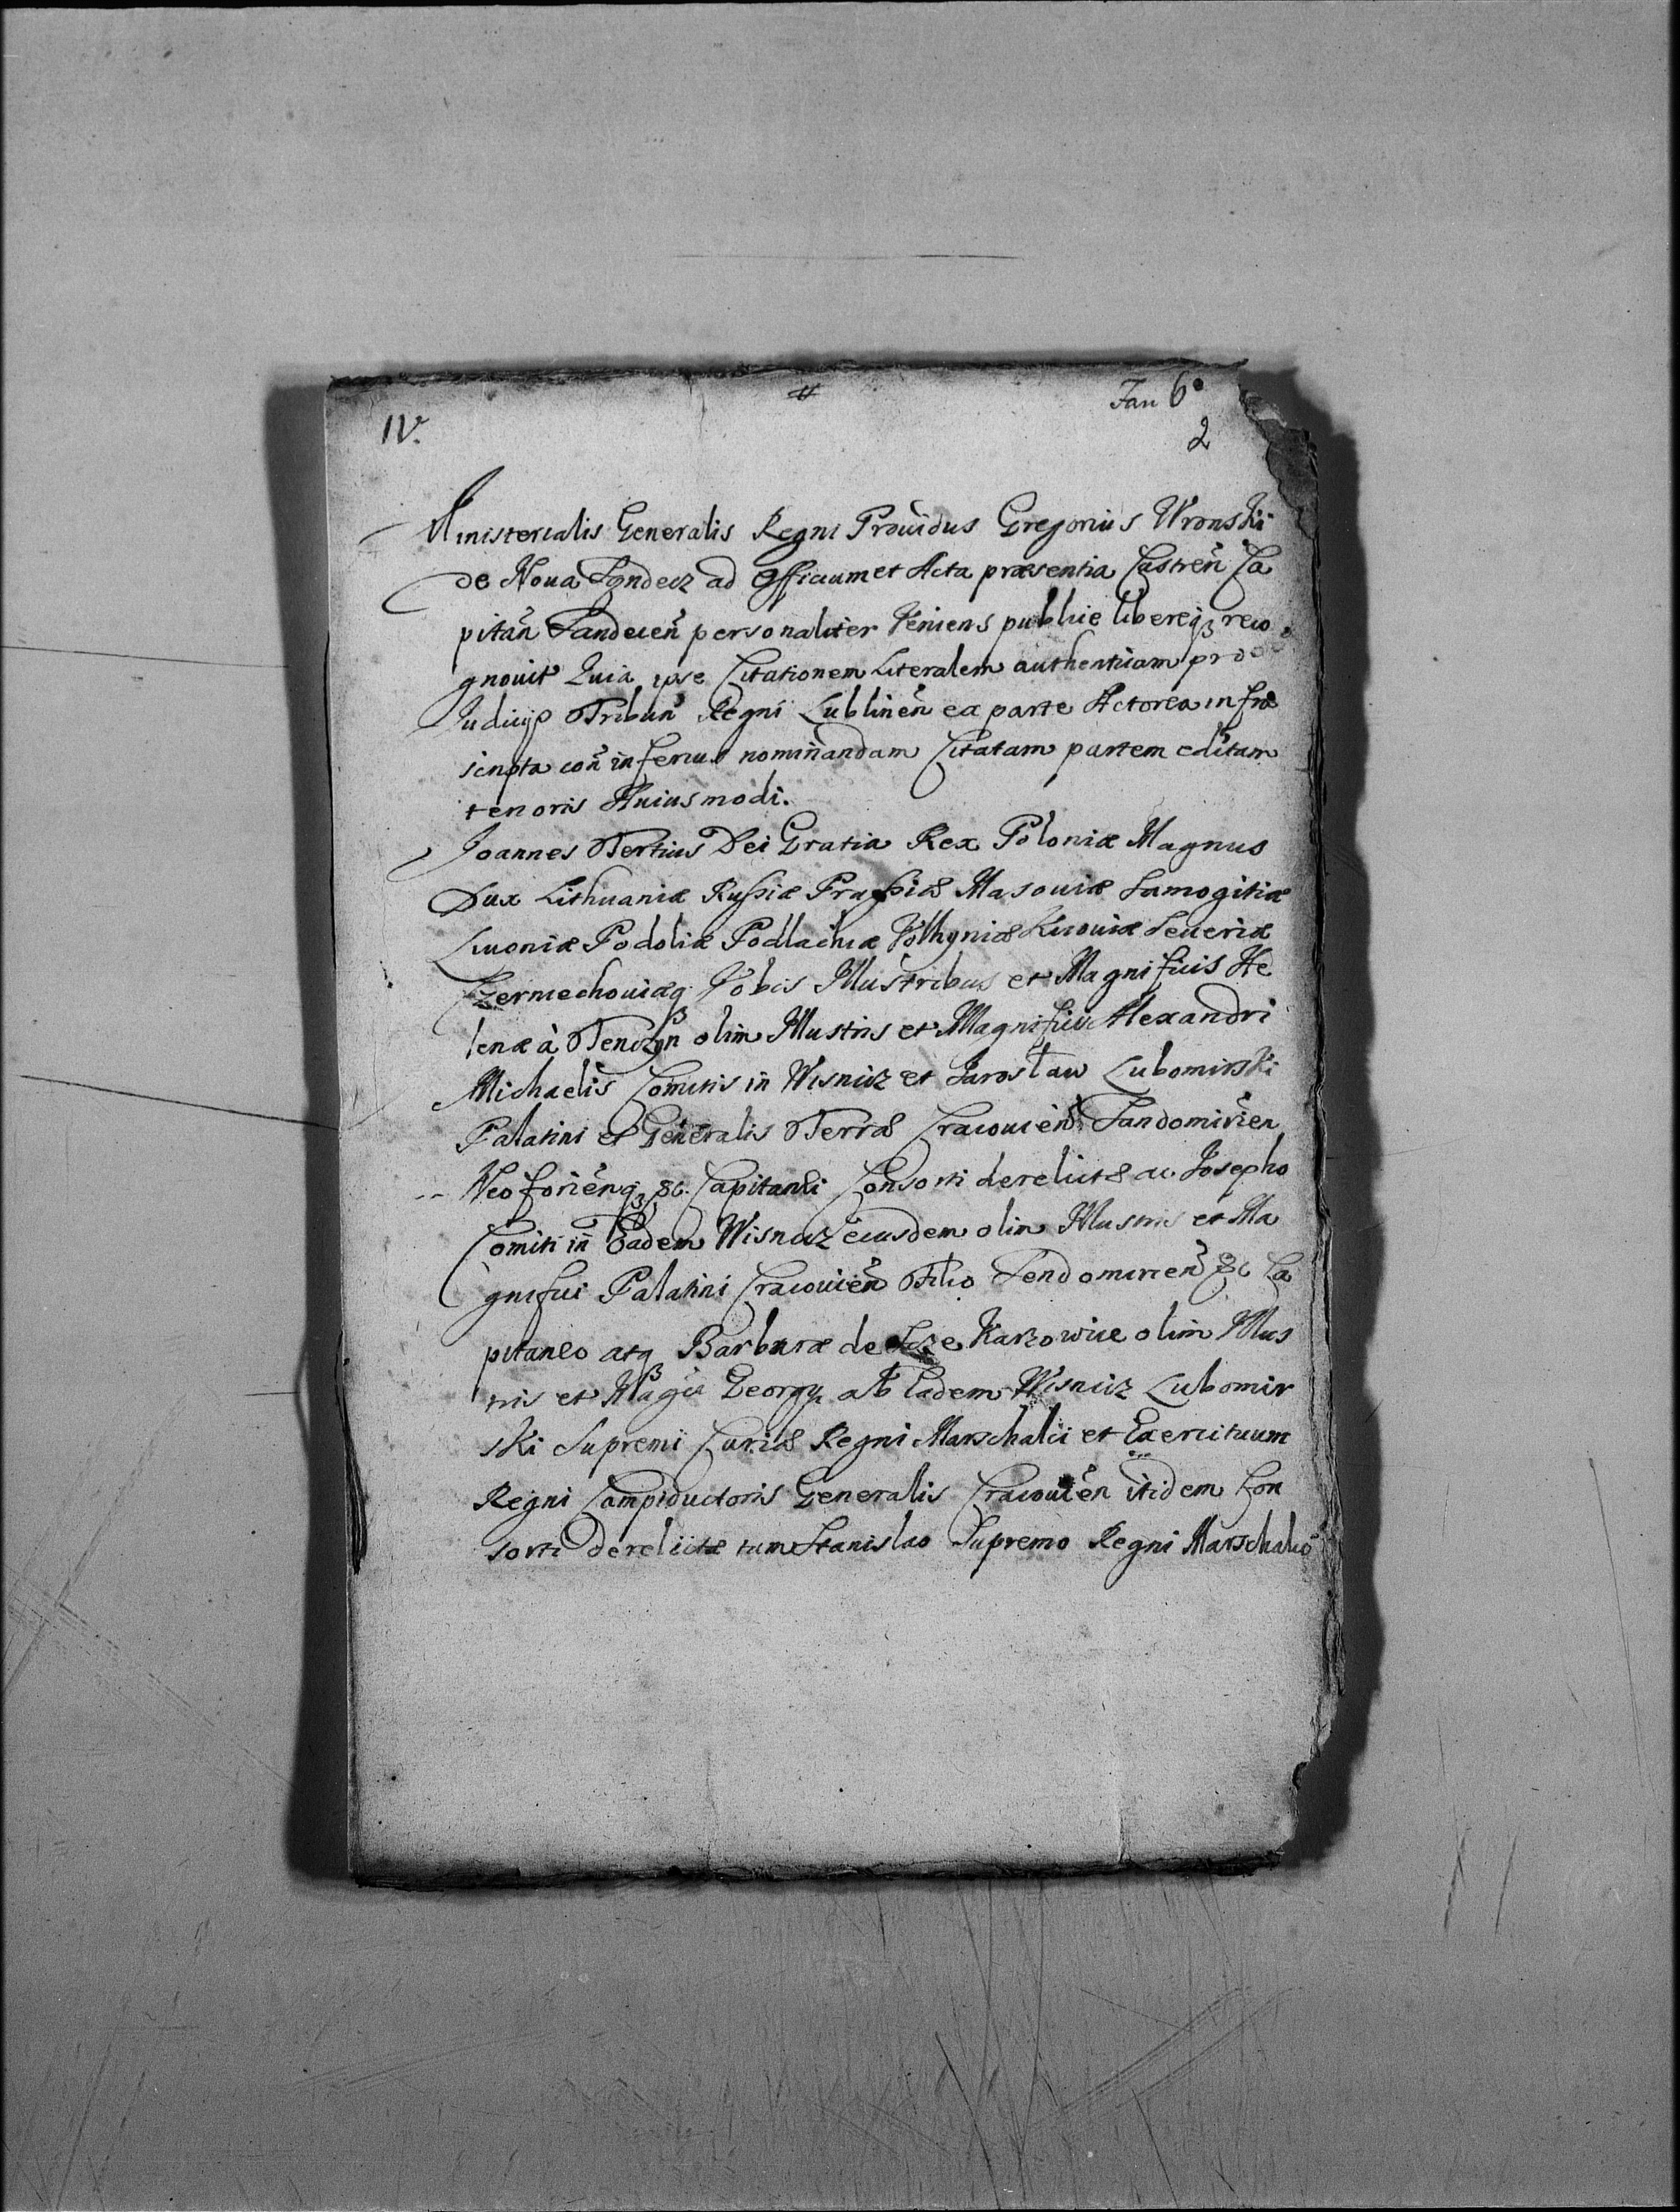 IV.
Jan 6°
2
Ministerialis Generalis Regni Prouidus Gregorius Wronski
de Noua Sandecz ad Officium et Acta præsentia Castren Ca
pitan Sandecen personaliter Veniens publice libereq3 reco
gnouit Quia ipse Citationem Literalem authenticam pro
Iudicijs Tribun Regni Lublinen ex parte Actorea infra
scripta con inferius nominandam Citatam partem editam
tenoris Huiusmodi.
Joannes Tertius Dei Gratia Rex Poloniæ Magnus
Dux Lithuaniæ Rußiæ Prußiæ Masouiæ Samogitiæ
Liuoniæ Podoliæ Podlachiæ Volhyniæ Kiiouiæ Seueriæ
Czerniechouiæq3 Vobis Illustribus et Magnificis He
lenæ à Tenczyn olim Illustris et Magnifici Alexandri
Michaelis Comitis in Wisnicz et Jarosław Lubomirski
Palatini et Generalis Terræ Cracouien Sandomirien
Neoforienq3 &c. Capitanei Consorti derelictæ ac Josepho
Comiti in Eadem Wisnicz eiusdem olim Illustris et Ma
gnifici Palatini Cracouien Filio Sendomirien &c Ca
pitaneo atq3 Barbaræ de Karzowice olim Illus
tris et Magci Georgy ab Eadem Wisnicz Lubomir
ski Supremi Curiæ Regni Marschalci et Exercituum
Regni Campiductoris Generalis Cracouien itidem Con
sorti derelictæ tum Stanislao Supremo Regni Marschalco